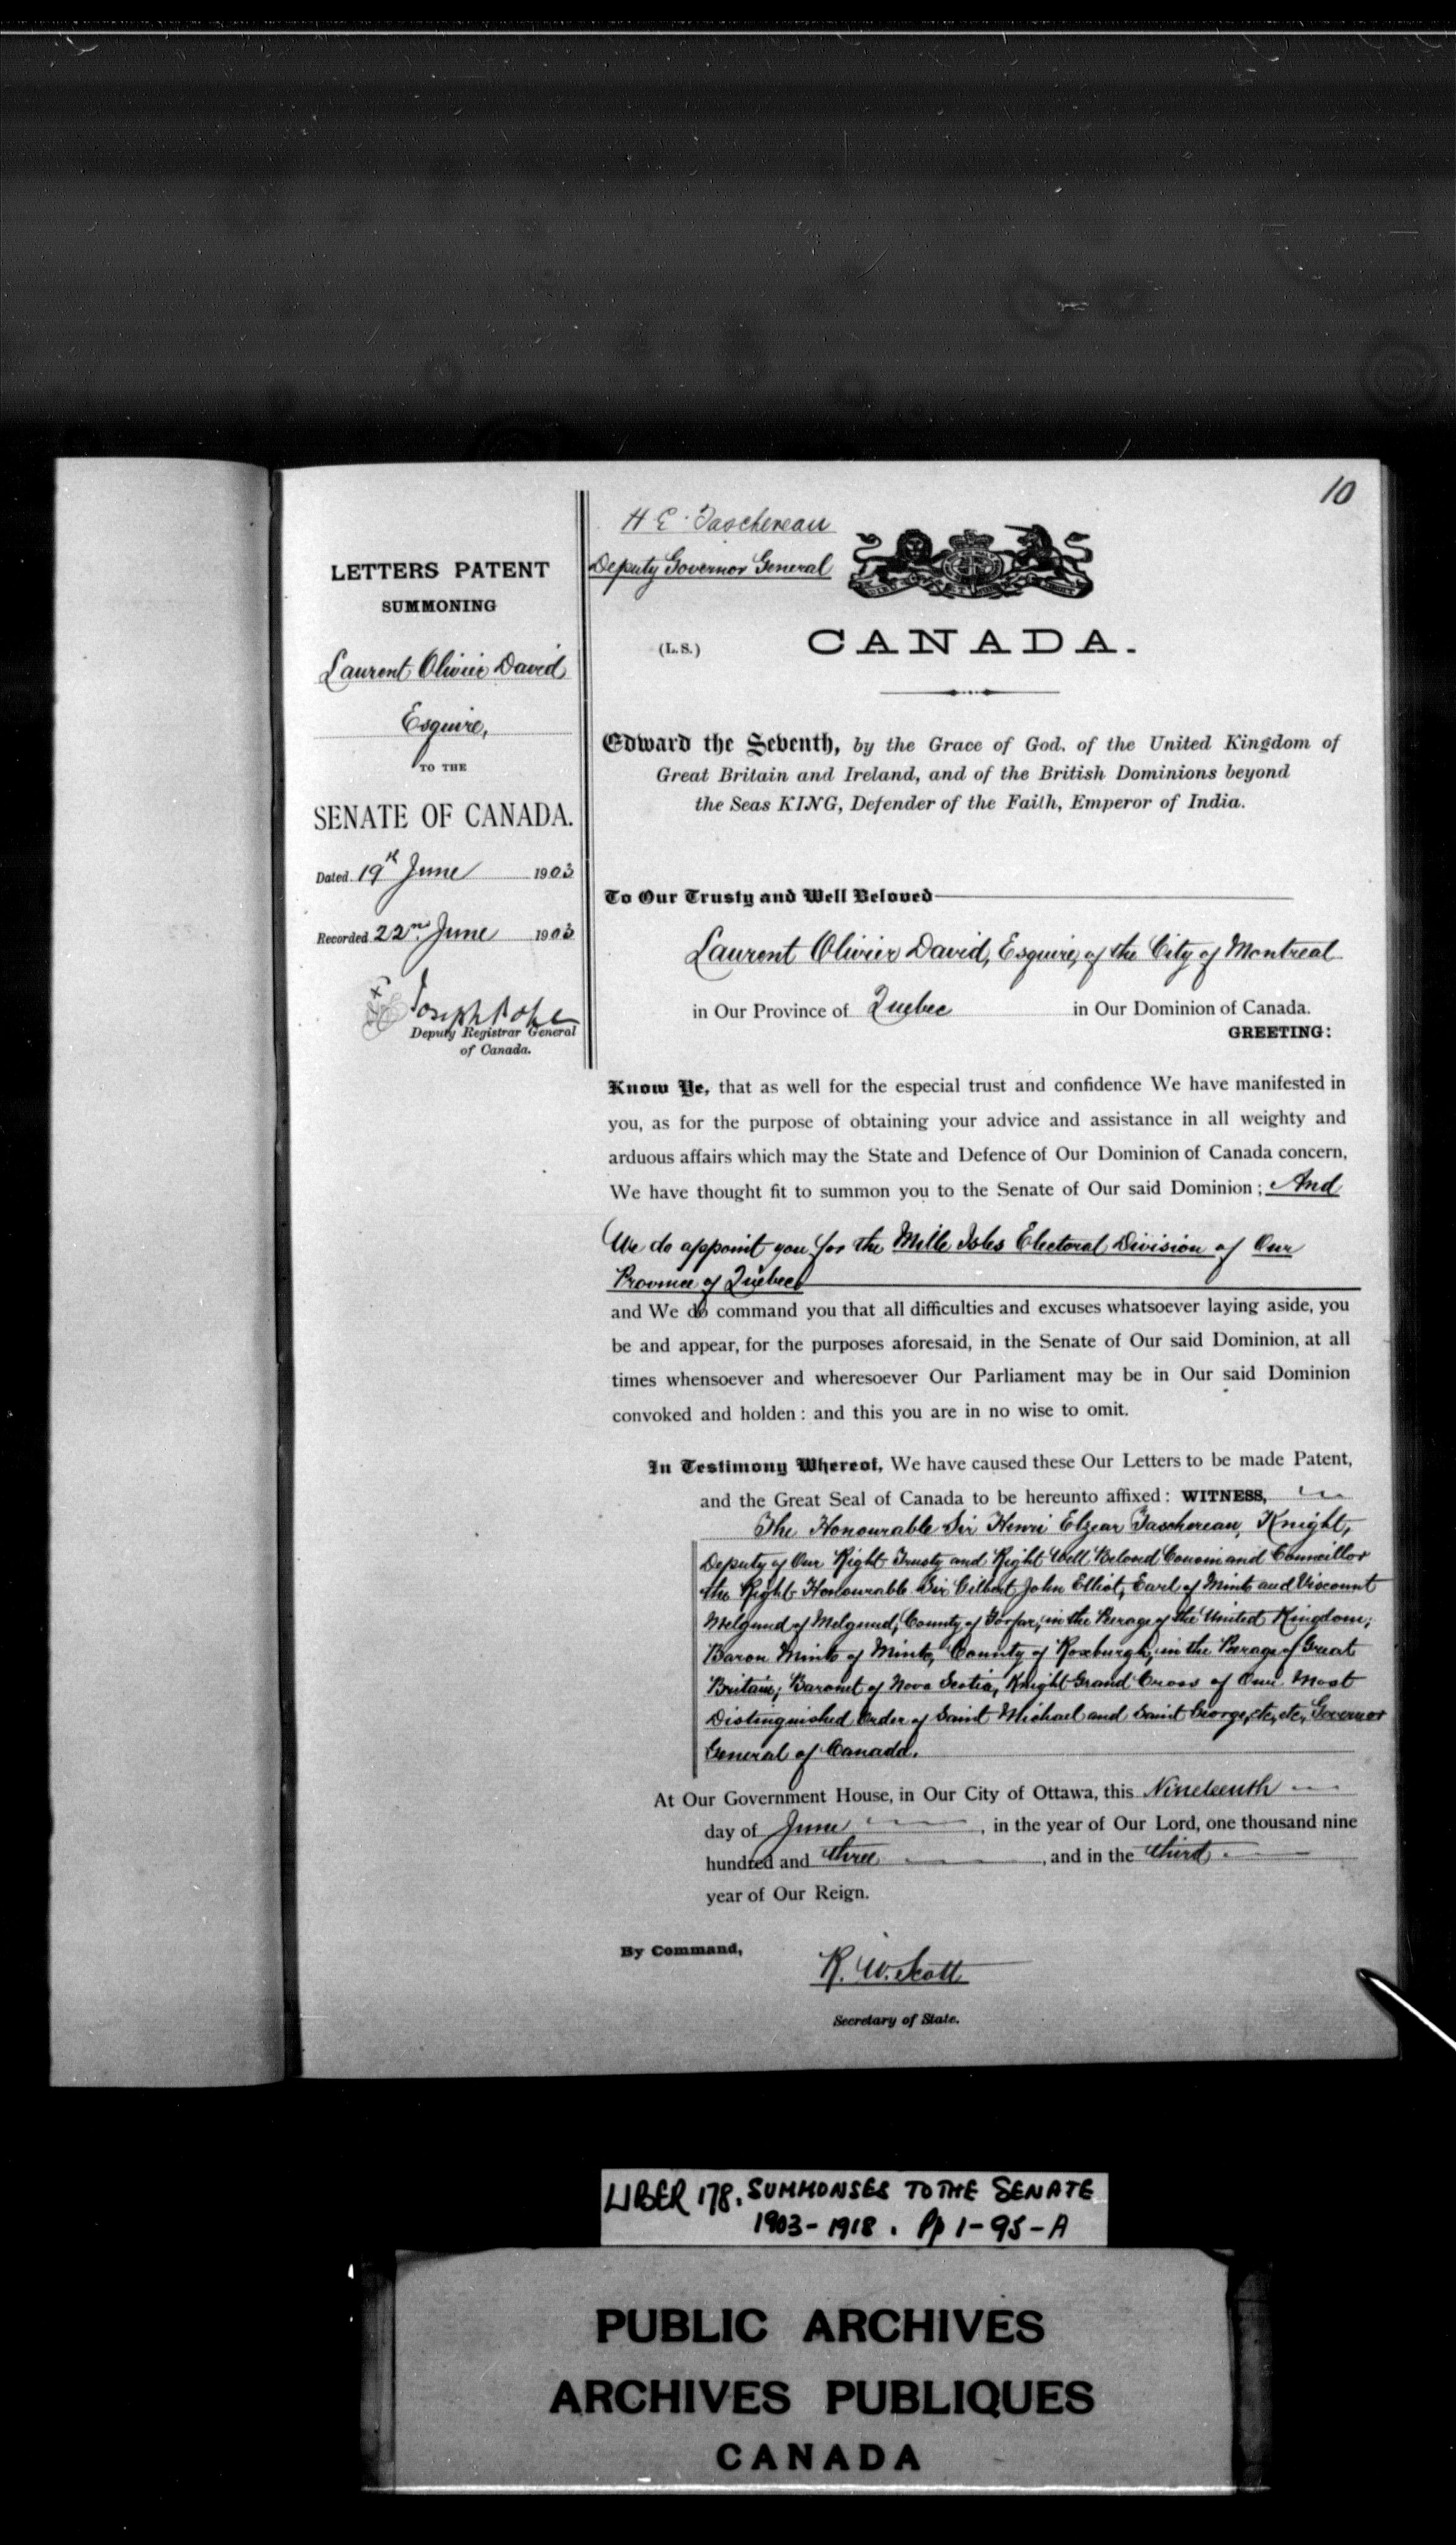 10
LETTERS PATENT
SUMMONING
Laurent Olivier David
Esquire,
TO THE
SENATE OF CANADA.
Dated 19th June 1903
Recorded 22nd June 1903
Joseph Pope
Deputy Registrar General
of Canada.
H E Taschereau
Deputy Governor General
(L.S.)
CANADA.
Edward the Seventh, by the Grace of God, of the United Kingdom of
Great Britain and Ireland, and of the British Dominions beyond
the Seas KING, Defender of the Faith, Emperor of India.
To Our Trusty and Well Beloved
Laurent Olivier David, Esquire, of the City of Montreal
in Our Province of Quebec in Our Dominion of Canada.
GREETING:
Know Ye, that as well for the especial trust and confidence We have manifested in
you, as for the purpose of obtaining your advice and assistance in all weighty and
arduous affairs which may the State and Defence of Our Dominion of Canada concern,
We have thought fit to summon you to the Senate of Our said Dominion; And
We do appoint you for the Mille Isles Electoral Division of Our
Province of Quebec
and We do command you that all difficulties and excuses whatsoever laying aside, you
be and appear, for the purposes aforesaid, in the Senate of Our said Dominion, at all
times whensoever and wheresoever Our Parliament may be in Our said Dominion
convoked and holden: and this you are in no wise to omit.
In Testimony Whereof, We have caused these Our Letters to be made Patent,
and the Great Seal of Canada to be hereunto affixed: WITNESS,
The Honourable Sir Henri Elzear Taschereau, Knight,
Deputy of Our Right Trusty and Right Well Beloved Cousin and Councillor
the Right Honourable Sir Gilbert John Elliot, Earl of Minto and Viscount
Melgund of Melgund, County of Forfar, in the Peerage of the United Kingdom;
Baron Minto of Minto, County of Roxburgh, in the Peerage of Great
Britain; Baronet of Nova Scotia, Knight Grand Cross of Our Most
Distinguished Order of Saint Michael and Saint George, etc, etc, Governor
General of Canada.
At Our Government House, in Our City of Ottawa, this Nineteenth
day of June, in the year of Our Lord, one thousand nine
hundred and three, and in the third
year of Our Reign.
By Command,
R. W. Scott
Secretary of State.
LIBER 178. SUMMONSES TO THE SENATE
1903-1918. Pp 1-95-A
PUBLIC ARCHIVES
ARCHIVES PUBLIQUES
CANADA